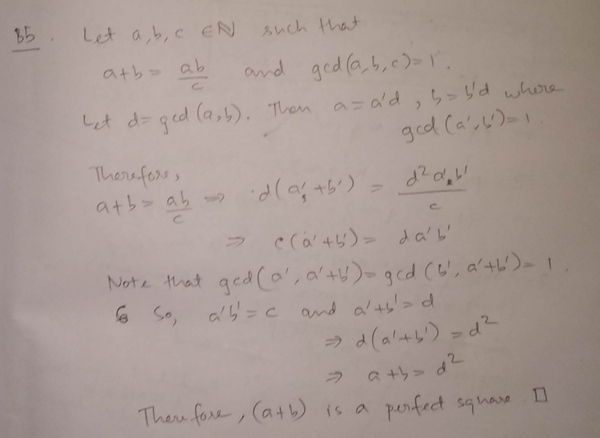 B5. Let a, b, c ∈ ℕ such that
a+b = ab/c and gcd(a,b,c)=1.
Let d = gcd(a,b). Then a=a'd, b=b'd where
gcd(a',b')=1.
Therefore,
a+b = ab/c ⇒ d(a'+b') = d²a'b'/c
⇒ c(a'+b') = da'b'
Note that gcd(a', a'+b') = gcd(b', a'+b') = 1.
So, a'b' = c and a'+b' = d
⇒ d(a'+b') = d²
⇒ a+b = d²
Therefore, (a+b) is a perfect square □